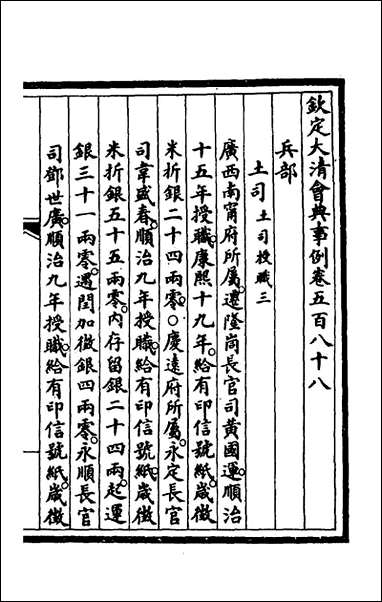 欽定大清會典事例卷五百八十八
兵部
土司 土司授職三
廣西南甯府所屬。遷隆峝長官司黃國運。順治
十五年授職。康熙十九年。給有印信號紙。歲徵
米折銀二十四兩零。○慶遠府所屬。永定長官
司韋盛春。順治九年授職。給有印信號紙。歲徵
米折銀五十五兩零。內存留銀二十四兩。起運
銀三十一兩零。遇閏加徵銀四兩零。永順長官
司鄧世廣。順治九年授職。給有印信號紙。歲徵